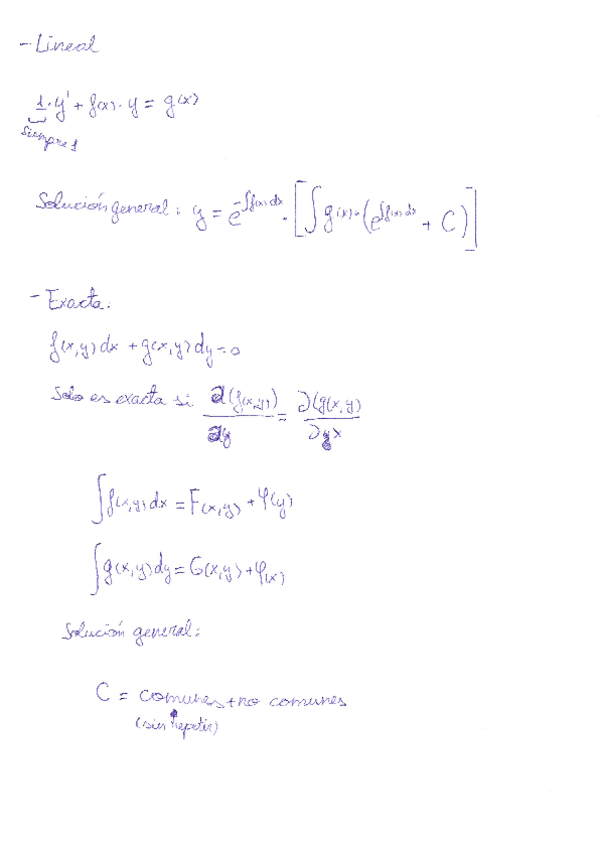 - Lineal
1·y' + f(x)·y = g(x)
Siempre 1
Solución general: y = e^{-∫f(x)dx} · [∫g(x)·(e^{∫f(x)dx} + C)]
- Exacta.
f(x,y) dx + g(x,y) dy = 0
Solo es exacta si ∂(f(x,y))/∂y = ∂(g(x,y)/∂x
∫f(x,y) dx = F(x,y) + φ(y)
∫g(x,y) dy = G(x,y) + φ(x)
Solución general:
C = comunes + no comunes
(sin repetir)